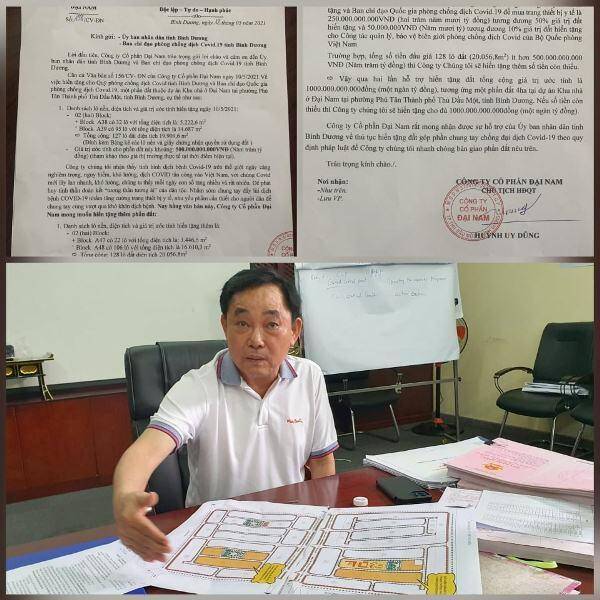 ĐẠI NAM
CV-ĐN
Độc lập - Tự do - Hạnh phúc
Bình Dương, ngày 05 năm 2021
Kính gửi: - Ủy ban nhân dân tỉnh Bình Dương
- Ban chỉ đạo phòng chống dịch Covid.19 tỉnh Bình Dương
Lời đầu tiên, Công ty Cổ phần Đại Nam trân trọng gửi lời chào và cảm ơn đến Ủy
ban nhân dân tỉnh và Ban chỉ đạo phòng chống dịch Covid.19 tỉnh Bình Dương.
Căn cứ Văn bản số 156/CV- ĐN của Công ty Cổ phần Đại Nam ngày 10/5/2021 Về
việc hiến tặng cho Quỹ phòng chống dịch Covid tỉnh Bình Dương và Ban chỉ đạo Quốc gia
phòng chống dịch COVID.19, một phần đất thuộc dự án Khu nhà ở Đại Nam tại Phường
Phú Tân Thành Phố Thủ Dầu Một, tỉnh Bình Dương, cụ thể như sau:
1. Danh sách lô nền, diện tích và giá trị ước tính hiến tặng ngày 10/5/2021:
- 02 (hai) Block:
+ Block A38 có 32 lô với tổng diện tích là: 5.222,6 m²
+ Block A39 có 95 lô với tổng diện tích là: 14.687 m²
Tổng cộng 127 lô đất diện tích
(Đính kèm Bảng kê các lô nền và giấy chứng nhận quyền sử dụng đất)
- Giá trị ước tính cho phần đất này khoảng: 500.000.000.000VND (Năm trăm tỷ
đồng) (tham khảo theo giá thị trường thực tế tại thời điểm hiện tại).
Công ty chúng tôi nhận thấy tình hình dịch bệnh Covid-19 trên thế giới ngày càng
nghiêm trọng, nguy hiểm, khó lường, dịch COVID tấn công vào Việt Nam, với chủng Covid
mới lây lan nhanh, khó lường, chúng ta thấy mỗi ngày con số tăng nhiều và rất nhiều. Để phát
huy tinh thần đoàn kết "tương thân tương ái" của dân tộc. Nhằm sớm chung tay đẩy lùi dịch
bệnh COVID-19 nhằm tăng cường trang thiết bị y tế, nhu yếu phẩm cần thiết cho người dân để
chung tay cùng vượt qua khó khăn dịch bệnh. Nay bằng văn bản này, Công ty Cổ phần Đại
Nam mong muốn hiến tặng thêm phần đất:
1. Danh sách lô nền, diện tích và giá trị ước tính hiến tặng thêm là:
- 02 (hai) Block:
+ Block A47 có 22 lô với tổng diện tích là: 3.446,5 m²
+ Block A48 có 106 lô với tổng diện tích là: 16.610,3 m²
Tổng cộng 128 lô đất diện tích 20.056,8m²
tặng và Ban chỉ đạo Quốc gia phòng chống dịch Covid.19 để mua trang thiết bị y tế là
250.000.000.000VND (hai trăm năm mươi tỷ đồng) tương đương 50% giá trị đất
hiến tặng và 50.000.000.000VND (Năm mươi tỷ) tương đương 10% giá trị đất hiến tặng
cho Công tác quản lý, bảo vệ biên giới phòng chống dịch Covid của Bộ Quốc phòng
Việt Nam.
Trường hợp, tổng số tiền đấu giá 128 lô đất (20.056,8m²) ít hơn 500.000.000.000
VND (Năm trăm tỷ đồng) thì Công ty Chúng tôi sẽ hiến tặng thêm số tiền còn thiếu.
Vậy qua hai lần hỗ trợ hiến tặng đất tổng cộng giá trị ước tính là
1000.000.000.000đồng (một ngàn tỷ đồng), tương ứng một phần đất 4ha tại dự án Khu nhà
ở Đại Nam tại phường Phú Tân Thành phố Thủ Dầu Một, tỉnh Bình Dương. Nếu số tiền còn
thiếu thì Công ty chúng tôi sẽ hiến tặng cho đủ 1000.000.000.000đồng (một ngàn tỷ đồng).
Công ty Cổ phần Đại Nam rất mong nhận được sự hỗ trợ của Ủy ban Nhân dân tỉnh
Bình Dương về thủ tục hiến tặng đất góp phần chung tay chống đại dịch Covid-19 theo quy
định pháp luật để Công ty chúng tôi nhanh chóng bàn giao phần đất nêu trên.
Trân trọng kính chào./.
Nơi nhận:
-Như trên.
-Lưu VP.
CÔNG TY CỔ PHẦN ĐẠI NAM
CHỦ TỊCH HĐQT
CÔNG TY
CỔ PHẦN
ĐẠI NAM
HUỲNH UY DŨNG